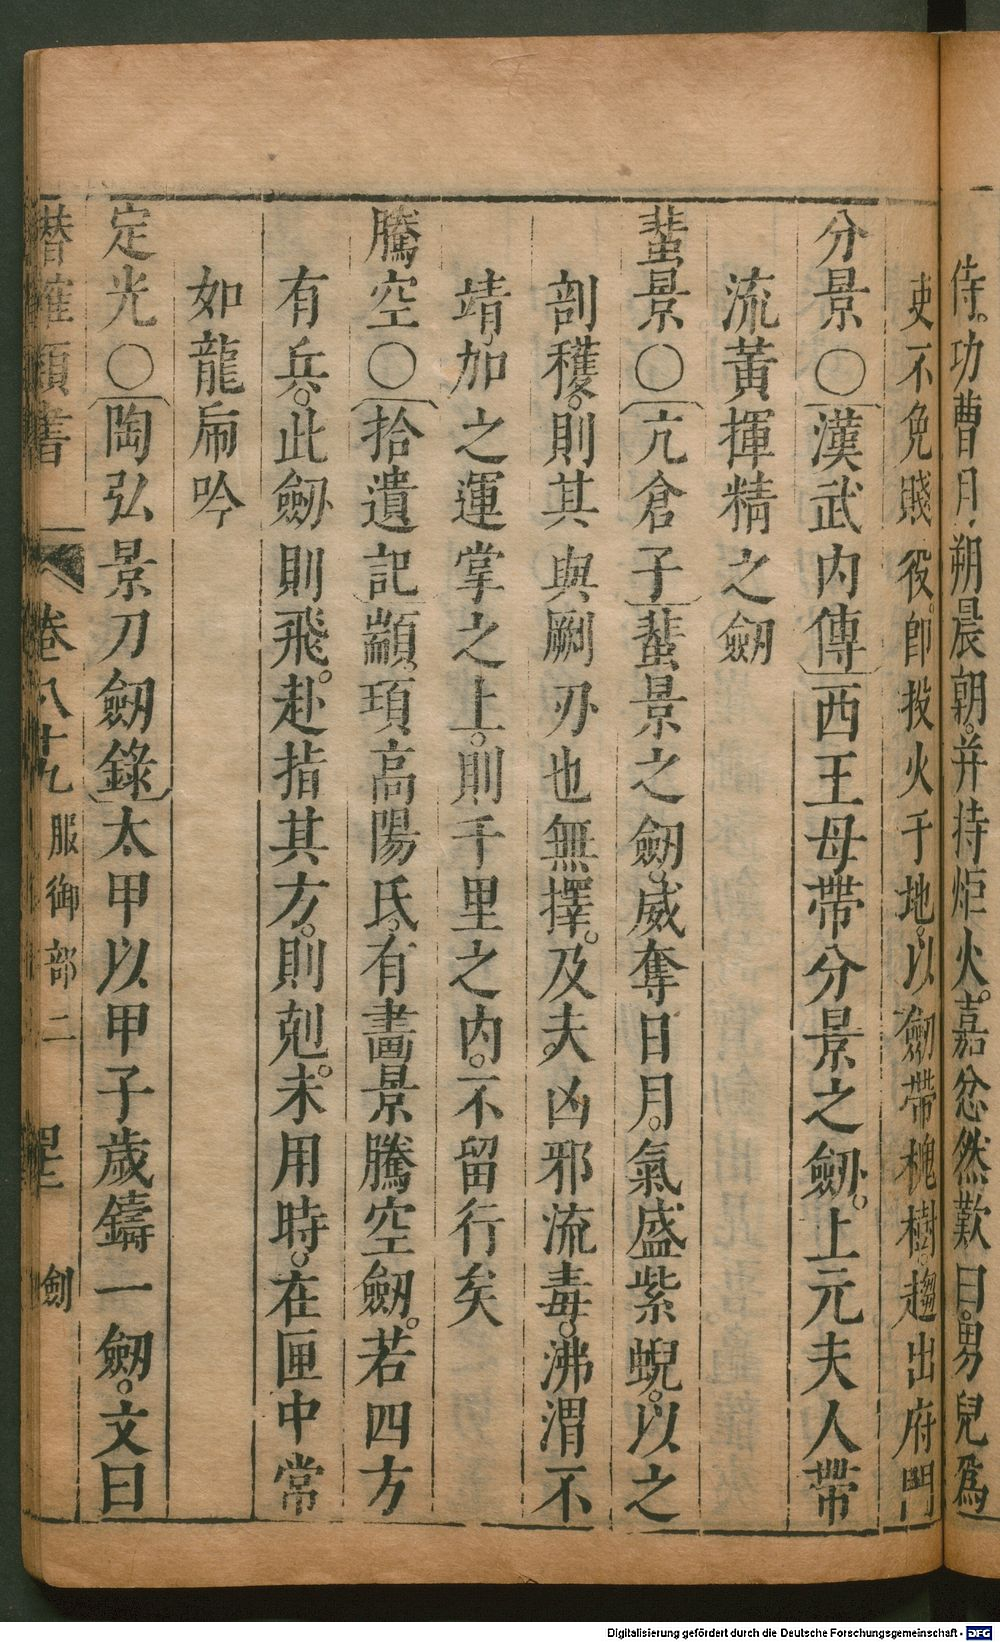 侍。功曹月朔晨朝。并持炬火。嘉忿然歎曰。男兒爲
吏不免賤役。卽投火于地。以劒帶槐樹。趨出府門
分景○漢武內傳西王母帶分景之劒。上元夫人帶
流黃揮精之劒
蜚景○亢倉子蜚景之劒。威奪日月。氣盛紫蜺。以之
剖穫。則其與劂刅也無擇。及夫凶邪流毒。沸渭不
靖。加之運掌之上。則千里之內。不留行矣
騰空○拾遺記顓頊高陽氏。有畫景騰空劒。若四方
有兵。此劒則飛。赴指其方。則剋。未用時。在匣中常
如龍乕吟
定光○陶弘景刀劒錄太甲以甲子歲鑄一劒。文曰
潛確類書 卷八十九 服御部二 劍
Digitalisierung gefördert durch die Deutsche Forschungsgemeinschaft - DFG